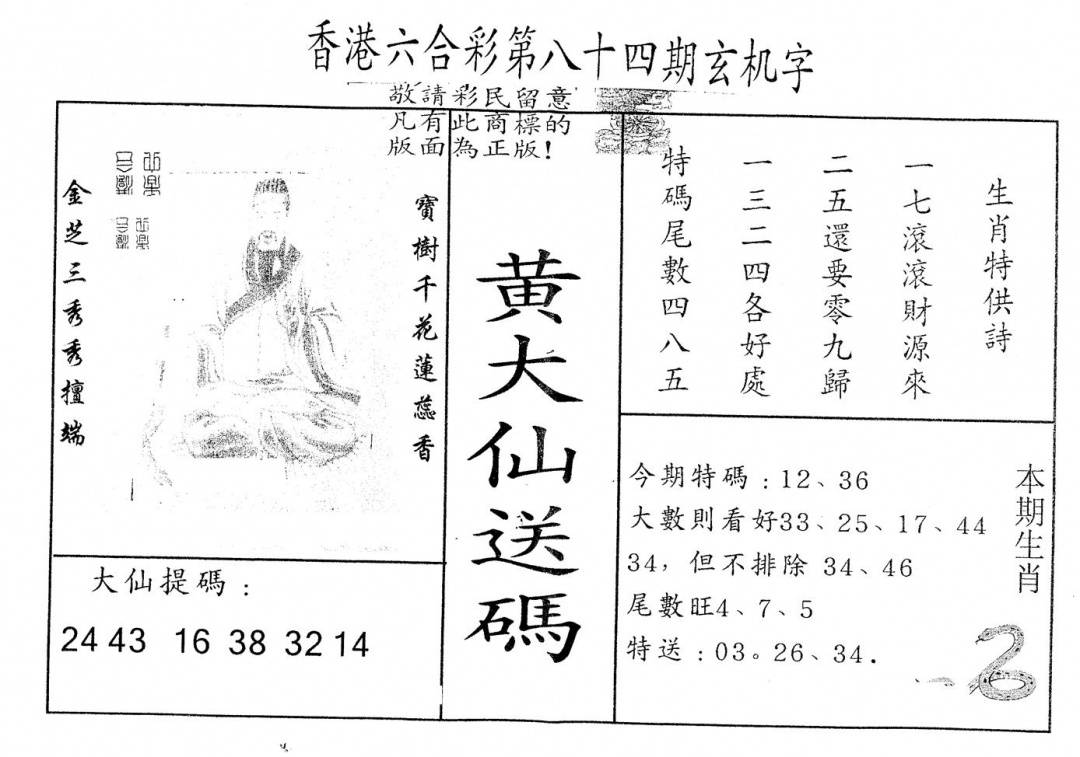 香港六合彩第八十四期玄机字
敬請彩民留意
凡有此商標的
版面為正版!
金芝三秀秀擅端
寶樹千花蓮蕊香
黄大仙送碼
生肖特供詩
一七滾滾財源來
二五還要零九歸
一三二四各好處
特碼尾數四八五
大仙提碼：
24 43 16 38 32 14
本期生肖
今期特碼：12、36
大數則看好33、25、17、44
34，但不排除 34、46
尾數旺4、7、5
特送：03。26、34.